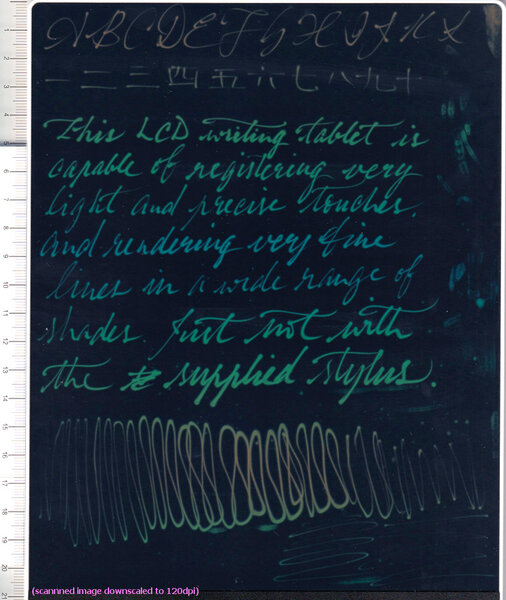 A B C D E F G H I J K L
一 二 三 四 五 六 七 八 九 十
This LCD writing tablet is
capable of registering very
light and precise touches,
and rendering very fine
lines in a wide range of
shades. Just not with
the supplied stylus.
(scannned image downscaled to 120dpi)